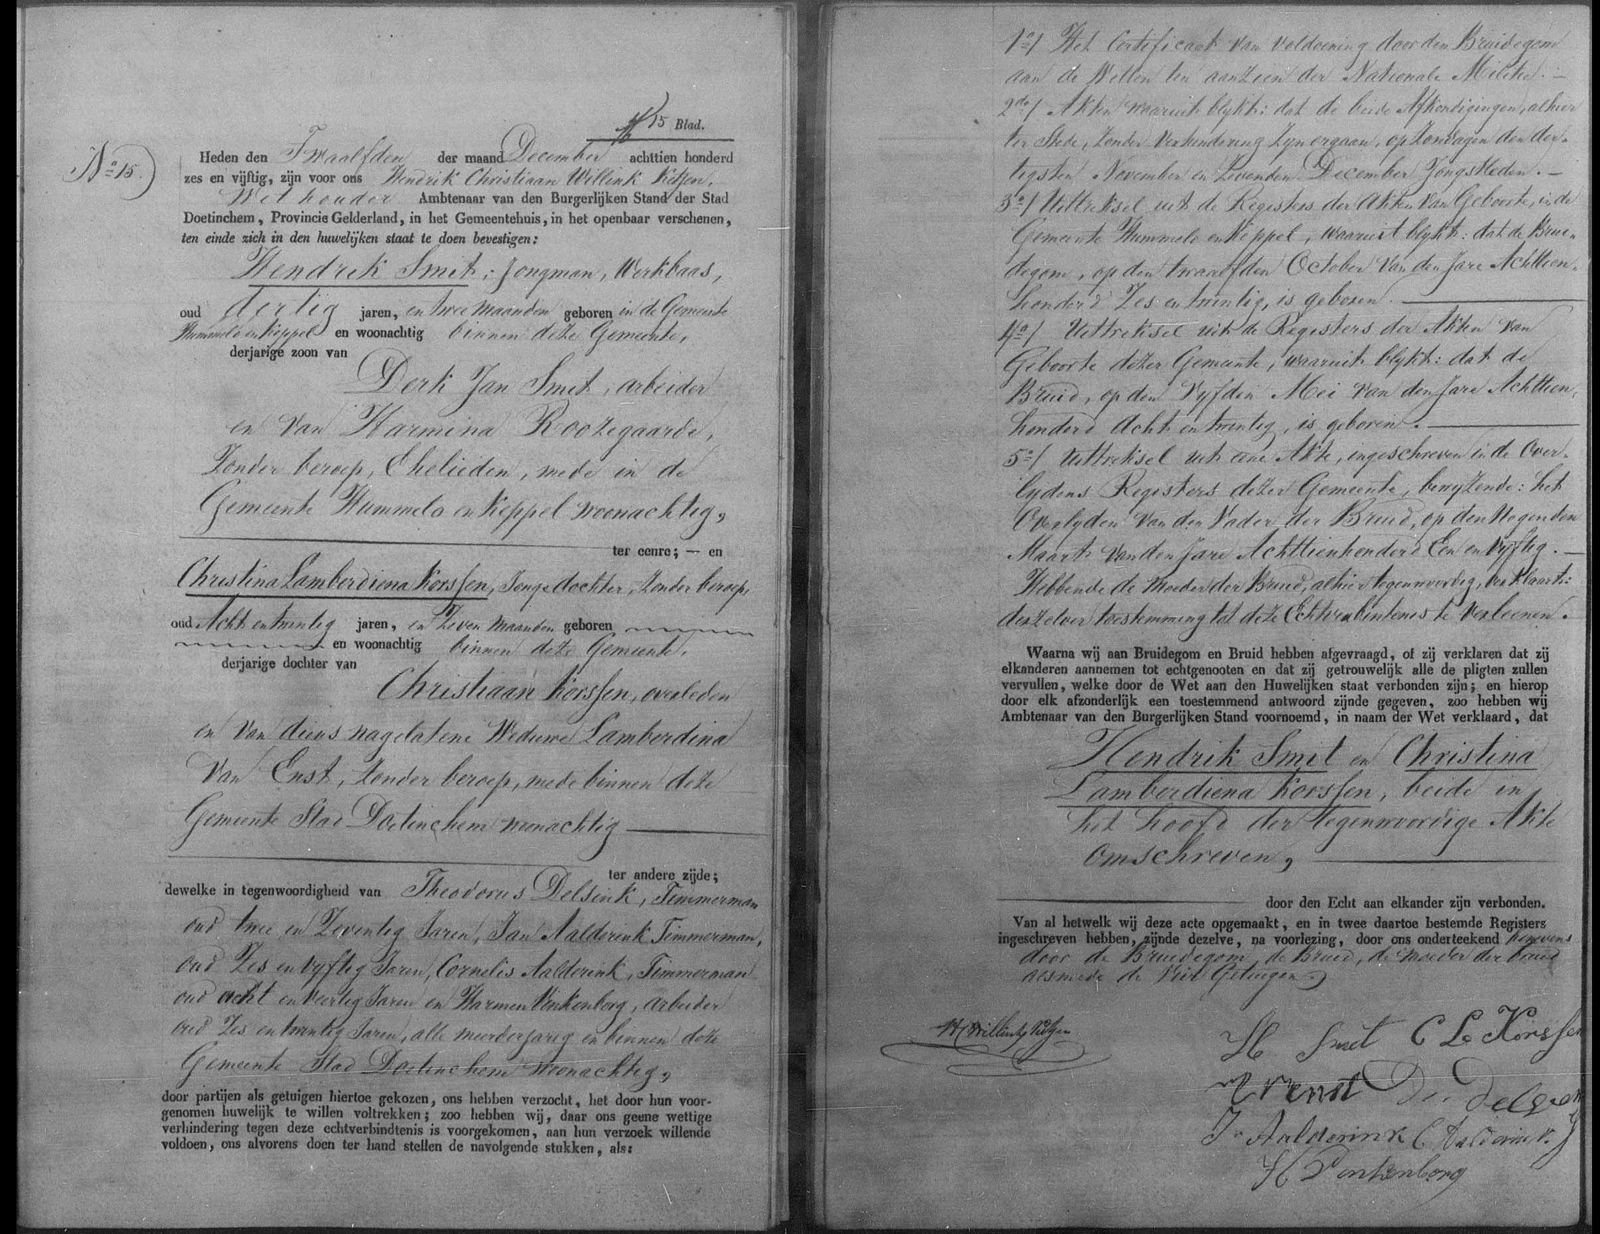 15 Blad.
No 15.
Heden den Twaalfden der maand December achttien honderd
zes en vijftig, zijn voor ons Hendrik Christiaan Willink Ketjen,
Wethouder Ambtenaar van den Burgerlijken Stand der Stad
Doetinchem, Provincie Gelderland, in het Gemeentehuis, in het openbaar verschenen,
ten einde zich in den huwelijken staat te doen bevestigen:
Hendrik Smit, Jongman, Werkbaas,
oud dertig jaren, en twee maanden geboren in de Gemeente
Hummelo en Keppel en woonachtig binnen deze Gemeente,
derjarige zoon van
Derk Jan Smit, arbeider
en van Harmina Roozegaarde,
Zonder beroep, Ehelieden, mede in de
Gemeente Hummelo en Keppel woonachtig,
ter eenre; — en
Christina Lamberdiena Korssen, Jongedochter, Zonder beroep,
oud Acht en twintig jaren, en Zeven Maanden geboren
en woonachtig binnen deze Gemeente.
derjarige dochter van
Christiaan Korssen, overleden
en van diens nagelatene Weduwe Lamberdina
Van Enst, Zonder beroep, mede binnen deze
Gemeente Stad Doetinchem woonachtig
ter andere zijde;
dewelke in tegenwoordigheid van Theodorus Delsink, Timmerman
oud twee en Zeventig Jaren, Jan Aalderink Timmerman,
oud Zes en vyftig Jaren, Cornelis Aalderink, Timmerman
oud acht en veertig Jaren en Harmen Vinkenborg, arbeider
oud Zes en twintig Jaren, alle meerderjarig en binnen deze
Gemeente Stad Doetinchem woonachtig,
door partijen als getuigen hiertoe gekozen, ons hebben verzocht, het door hun voor-
genomen huwelijk te willen voltrekken; zoo hebben wij, daar ons geene wettige
verhindering tegen deze echtverbindtenis is voorgekomen, aan hun verzoek willende
voldoen, ons alvorens doen ter hand stellen de navolgende stukken, als:
1o/ Het Certificaat van voldoening door den Bruidegom
aan de Wetten ten aanzien der Nationale Militie. —
2do/ Akten waaruit blykt: dat de beide Afkondigingen, alhier
ter Stede, Zonder Verhindering Zyn ergaan, op Zondagen den der-
tigsten November en Zevenden December Jongstleden. —
3o/ Uittreksel uit de Registers der Akten van Geboorte, in de
Gemeente Hummelo en Keppel, waaruit blykt: dat de Brui-
degom, op den twaalfden October Van den Jare Achttien-
honderd Zes en twintig, is geboren.
4o/ Uittreksel uit de Registers der Akten van
Geboorte dezer Gemeente, waaruit blykt: dat de
Bruid, op den Vyfden Mei van den Jare Achttien-
honderd Acht en twintig, is geboren.
5o/ Uittreksel uit eene Akte, ingeschreven in de Over-
lydens Registers dezer Gemeente, bewyzende: het
Overlyden van den Vader der Bruid, op den Negenden
Maart van den Jare Achttienhonderd Een en Vyftig. —
Hebbende de Moeder der Bruid, alhier tegenwoordig, verklaart:
derzelver toestemming tot deze Echtverbintenis te verleenen.
Waarna wij aan Bruidegom en Bruid hebben afgevraagd, of zij verklaren dat zij
elkanderen aannemen tot echtgenooten en dat zij getrouwelijk alle de pligten zullen
vervullen, welke door de Wet aan den Huwelijken staat verbonden zijn; en hierop
door elk afzonderlijk een toestemmend antwoord zijnde gegeven, zoo hebben wij
Ambtenaar van den Burgerlijken Stand voornoemd, in naam der Wet verklaard, dat
Hendrik Smit en Christina
Lamberdiena Korssen, beide in
het hoofd der tegenwoordige Akte
omschreven,
door den Echt aan elkander zijn verbonden.
Van al hetwelk wij deze acte opgemaakt, en in twee daartoe bestemde Registers
ingeschreven hebben, zijnde dezelve, na voorlezing, door ons onderteekend benevens
door de Bruidegom, de Bruid, de moeder der bruid
alsmede de Vier Getuigen.
HC Willink Ketjen
H Smit C L Korssen
J Aalderink C Aalderink
H Vinkenborg